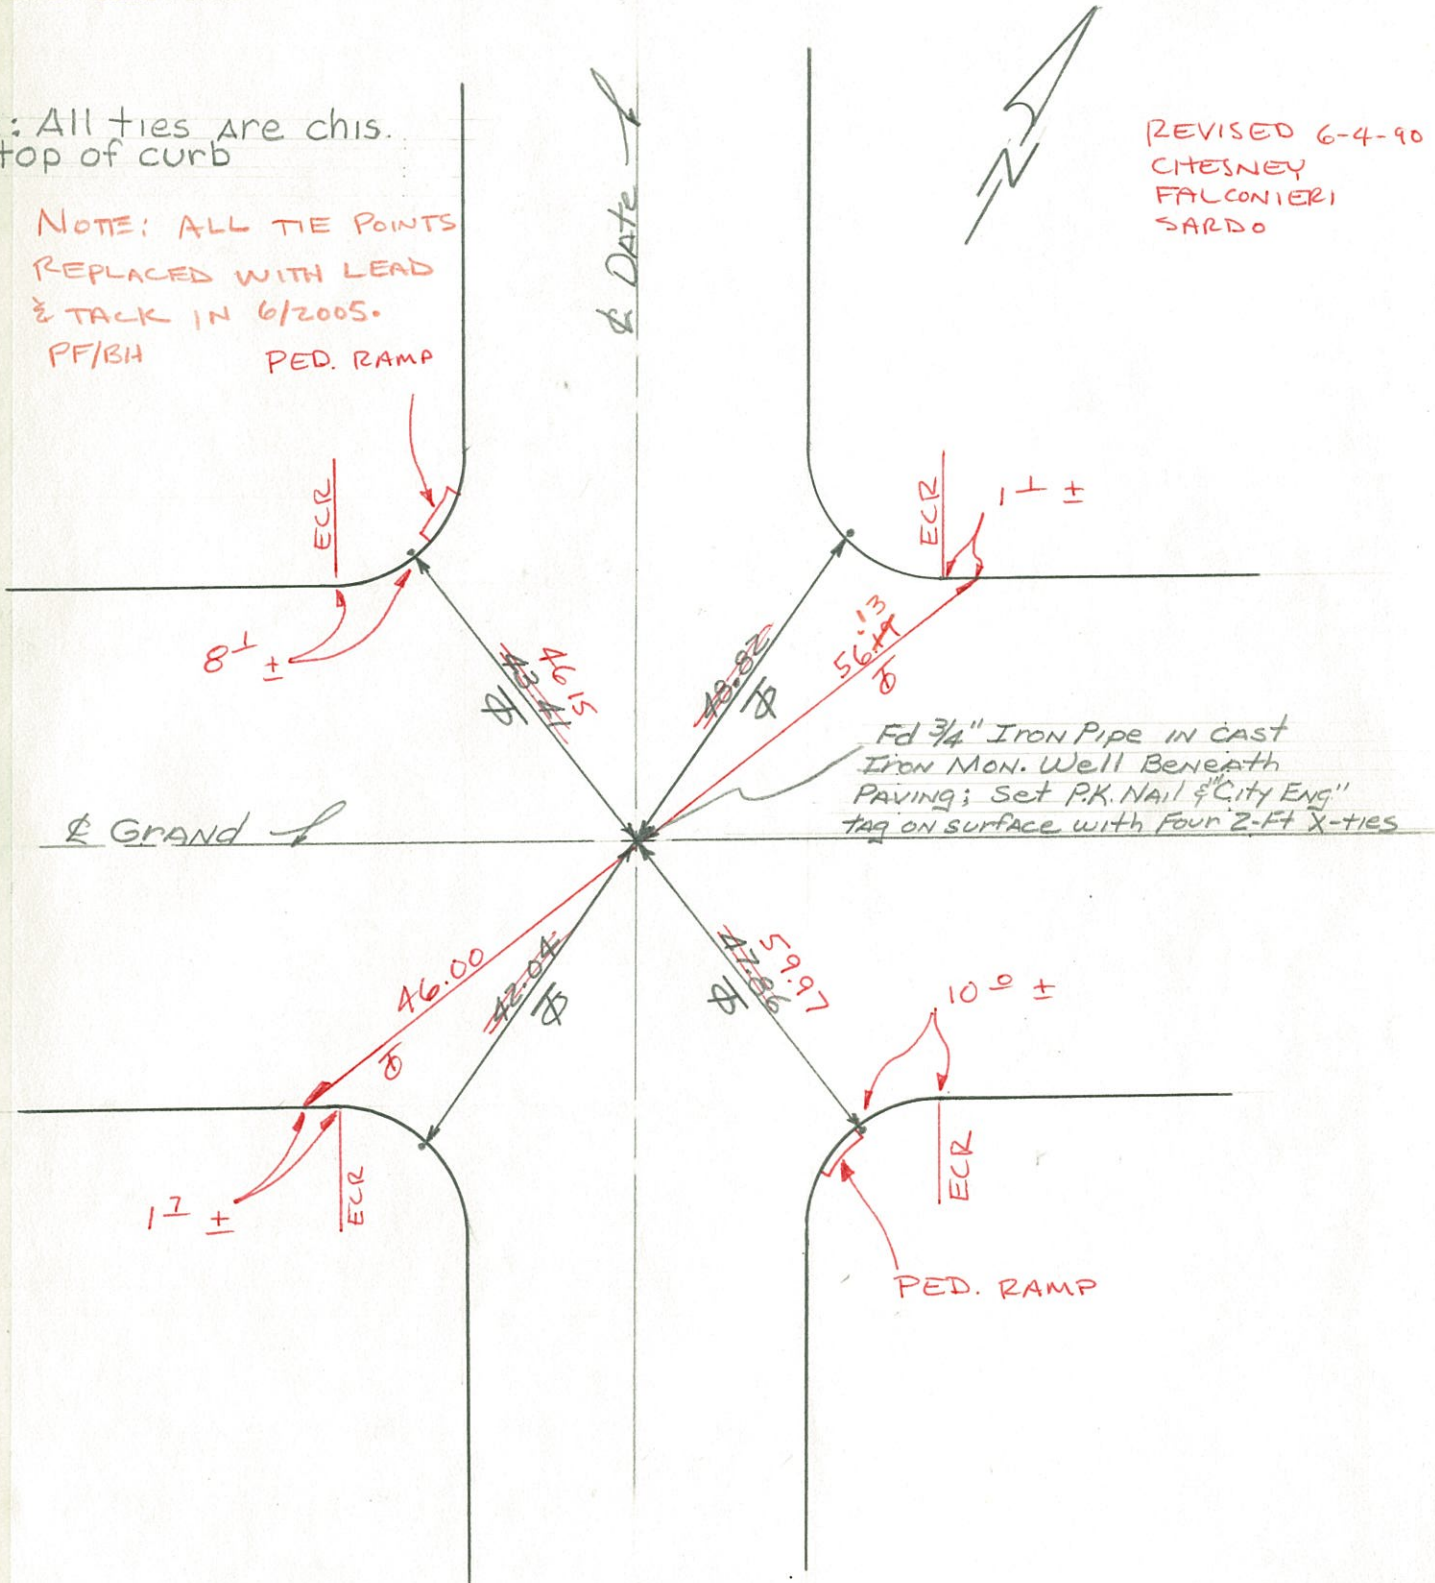 : All ties are chis.
top of curb
NOTE: ALL TIE POINTS
REPLACED WITH LEAD
& TACK IN 6/2005.
PF/BH
PED. RAMP
℄ Date
N
REVISED 6-4-90
CHESNEY
FALCONIERI
SARDO
ECR
ECR
1 1 ±
8 1 ±
43.41
46.15
48.82
56.19
.13
Fd 3/4" Iron Pipe in cast
Iron Mon. Well Beneath
Paving; Set P.K. Nail & "City Eng"
tag on surface with Four 2-Ft X-ties
℄ Grand
46.00
42.04
47.86
59.97
10 0 ±
1 7 ±
ECR
ECR
PED. RAMP